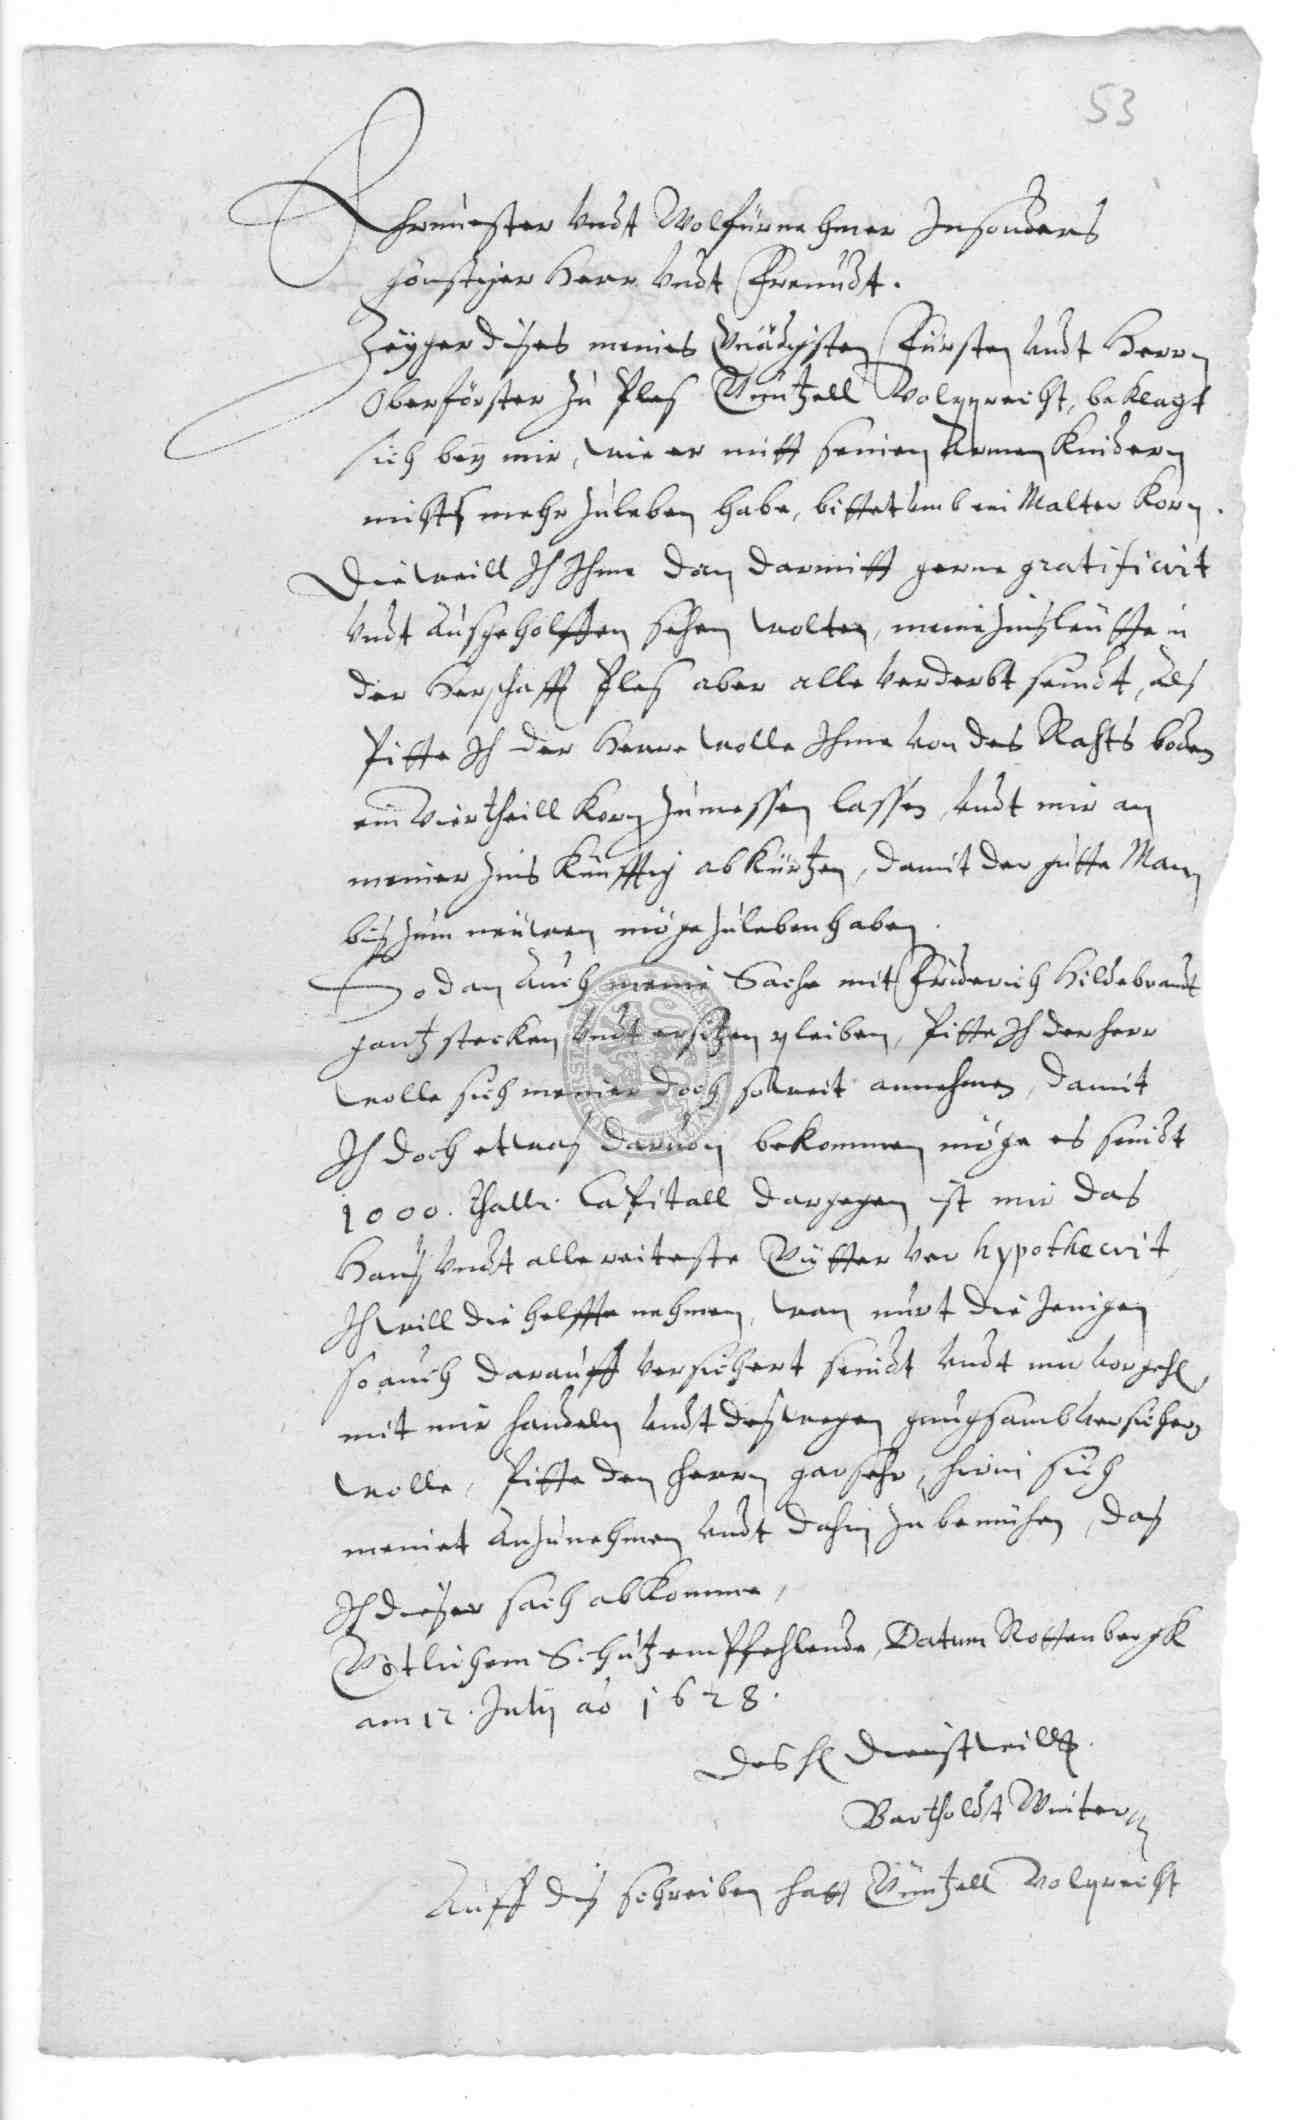 53
Ehrnuester Undt Wolfürnehmer Insonders
günstiger Herr Undt Freundt.
Zeyger dises meines Gnädigsten Fürsten Undt Herrn
Oberförster zu Ples Güntzell Volpprecht, beklagt
sich bey mir, wie er mitt seinen Armen Kindern
nichts mehr zuleben habe, bittet umb ein Malter Korn.
Dieweill Ich Ihme dan darmitt gerne gratificirt
Undt Ausgeholffen sehen wolten, meine
der Herschafft Ples aber alle verderbt seindt, Als
Pitte Ich der Herre wolle Ihme von des Rahts boden
ein Viertheill Korn zumessen lassen, Undt mir an
meiner Zins Künfftig abkürtzen, damit der gutte Man
bis zum neuwen möge zuleben haben.
So dan Auch meine Sache mit Friderich Hildebrandt
gantz stecken Undt ersitzen pleiben, Pitte Ich der Herr
wolle sich meiner doch soweit annehmen, damit
Ich doch etwas daruon bekommen möge es seindt
1000. Thalr. Capitall dargegen ist mir das
Haus Undt alle Gütter ver hypothecirt
Ich will die helffte nehmen, wan nurt die Jenigen
so auch darauff versichert seindt Undt mir vorgehn,
mit mir handeln Undt deswegen gnugsamb versichern
wolle, Pitte den Herrn gar sehr, hirin sich
meinet Anzunehmen Undt dahin zu bemühen, das
Ich dieser sach abkomme,
Götlichem Schutz empffehlende, Datum Rottenbergk
am 12. Julij ao 1628.
Des H Dienstwillg.
Bartholdt Winter
Auff dis schreiben hatt Güntzell Volprecht